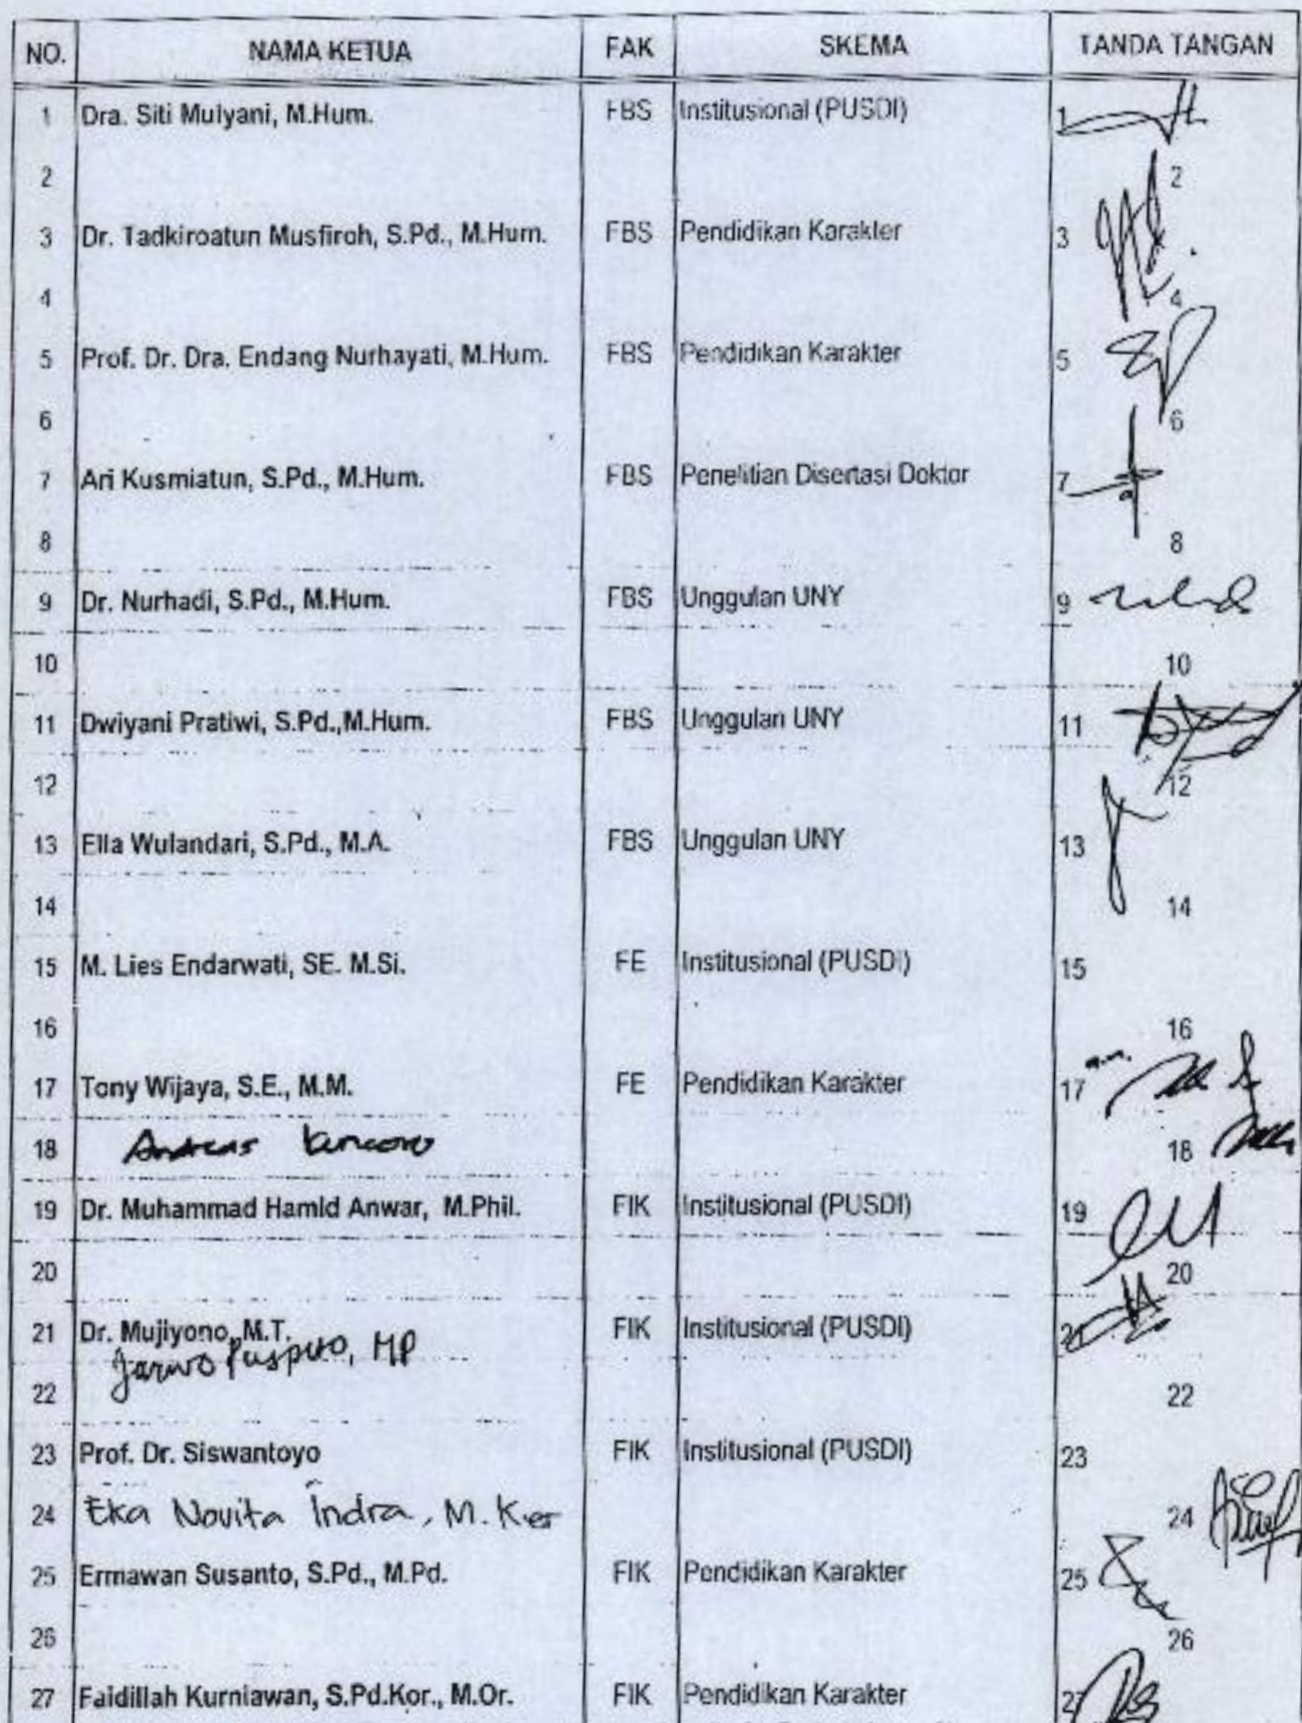 NO. NAMA KETUA FAK SKEMA TANDA TANGAN
1 Dra. Siti Mulyani, M.Hum. FBS Institusional (PUSDI) 1
2 2
3 Dr. Tadkiroatun Musfiroh, S.Pd., M.Hum. FBS Pendidikan Karakter 3
4 4
5 Prof. Dr. Dra. Endang Nurhayati, M.Hum. FBS Pendidikan Karakter 5
6 6
7 Ari Kusmiatun, S.Pd., M.Hum. FBS Penelitian Disertasi Doktor 7
8 8
9 Dr. Nurhadi, S.Pd., M.Hum. FBS Unggulan UNY 9
10 10
11 Dwiyani Pratiwi, S.Pd.,M.Hum. FBS Unggulan UNY 11
12 12
13 Ella Wulandari, S.Pd., M.A. FBS Unggulan UNY 13
14 14
15 M. Lies Endarwati, SE. M.Si. FE Institusional (PUSDI) 15
16 16
17 Tony Wijaya, S.E., M.M. FE Pendidikan Karakter 17 a.n.
18 Andreas 18
19 Dr. Muhammad Hamid Anwar, M.Phil. FIK Institusional (PUSDI) 19
20 20
21 Dr. Mujiyono, M.T. FIK Institusional (PUSDI) 21
Jarwo Puspito, MP
22 22
23 Prof. Dr. Siswantoyo FIK Institusional (PUSDI) 23
24 Eka Novita Indra, M. Kes 24
25 Ermawan Susanto, S.Pd., M.Pd. FIK Pendidikan Karakter 25
26 26
27 Faidillah Kurniawan, S.Pd.Kor., M.Or. FIK Pendidikan Karakter 27